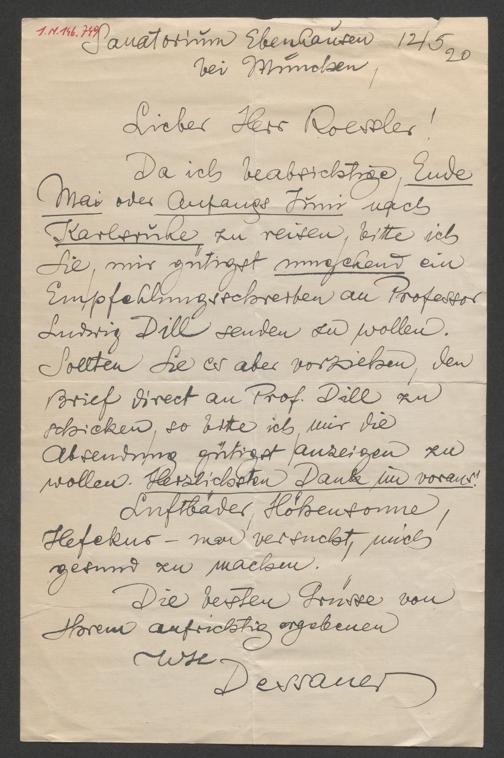 I.N. 146.749
Sanatorium Ebenhausen 12/5 20
bei München,
Lieber Herr Roessler!
Da ich beabsichtige, Ende
Mai oder Anfangs Juni nach
Karlsruhe zu reisen, bitte ich
Sie, mir gütigst umgehend ein
Empfehlungsschreiben an Professor
Ludwig Dill senden zu wollen.
Sollten Sie es aber vorziehen, den
Brief direct an Prof. Dill zu
schicken, so bitte ich, mir die
Absendung gütigst anzeigen zu
wollen. Herzlichsten Dank im voraus!
Luftbäder, Höhensonne,
Hefekur – man versucht, mich
gesund zu machen.
Die besten Grüsse von
Ihrem aufrichtig ergebenen
Dessauer